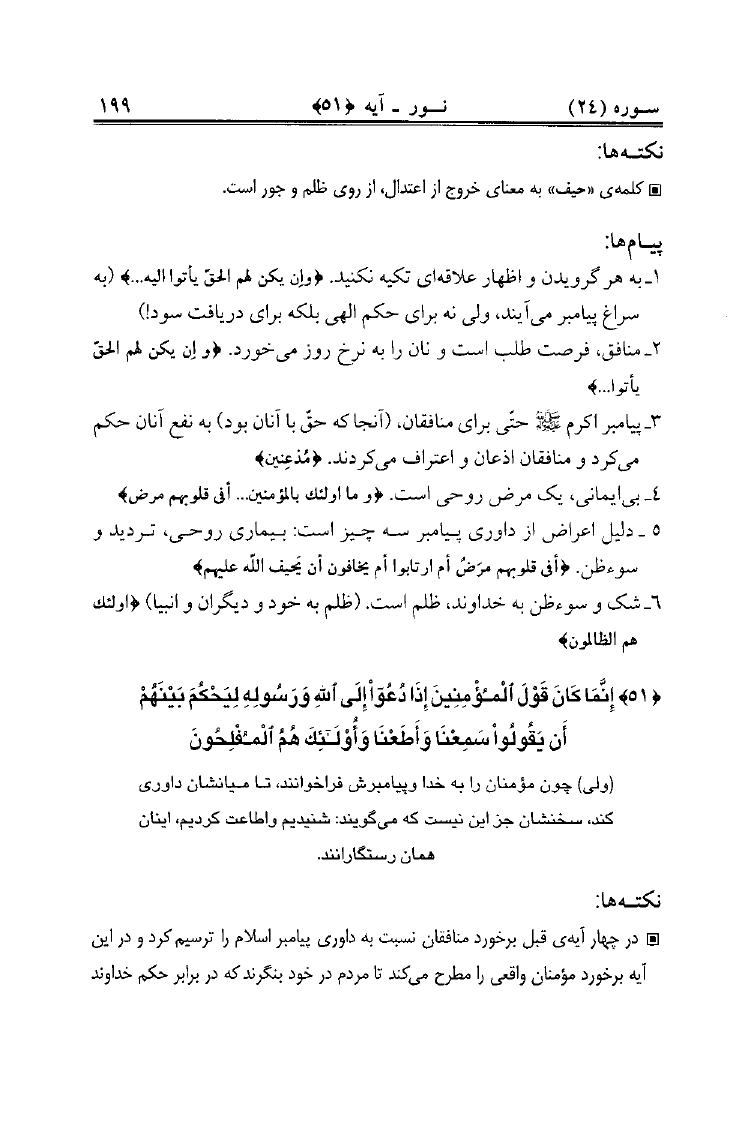 سوره (٢٤) نور ـ آیه ﴿٥١﴾ ١٩٩
نکته‌ها:
▣ کلمه‌ی «حیف» به معنای خروج از اعتدال، از روی ظلم و جور است.
پیام‌ها:
١ـ به هر گرویدن و اظهار علاقه‌ای تکیه نکنید. ﴿وإن یکن لهم الحقّ یأتوا الیه...﴾ (به
سراغ پیامبر می‌آیند، ولی نه برای حکم الهی بلکه برای دریافت سود!)
٢ـ منافق، فرصت طلب است و نان را به نرخ روز می‌خورد. ﴿و إن یکن لهم الحقّ
یأتوا...﴾
٣ـ پیامبر اکرم ﷺ حتّی برای منافقان، (آنجا که حقّ با آنان بود) به نفع آنان حکم
می‌کرد و منافقان اذعان و اعتراف می‌کردند. ﴿مُذعِنین﴾
٤ـ بی‌ایمانی، یک مرض روحی است. ﴿و ما اولئك بالمؤمنین... أفی قلوبهم مرض﴾
٥ ـ دلیل اعراض از داوری پیامبر سه چیز است: بیماری روحی، تردید و
سوءظن. ﴿أفی قلوبهم مرَضٌ أم ارتابوا أم یخافون أن یَحیف اللّه علیهم﴾
٦ـ شک و سوءظن به خداوند، ظلم است. (ظلم به خود و دیگران و انبیا) ﴿اولئك
هم الظالمون﴾
﴿٥١﴾ إِنَّمَا كَانَ قَوْلَ ٱلْمُؤْمِنِينَ إِذَا دُعُوٓاْ إِلَى ٱللَّهِ وَرَسُولِهِ لِيَحْكُمَ بَيْنَهُمْ
أَن يَقُولُواْ سَمِعْنَا وَأَطَعْنَا وَأُوْلَـٰٓئِكَ هُمُ ٱلْمُفْلِحُونَ
(ولی) چون مؤمنان را به خدا وپیامبرش فراخوانند، تا میانشان داوری
کند، سخنشان جز این نیست که می‌گویند: شنیدیم واطاعت کردیم، اینان
همان رستگارانند.
نکته‌ها:
▣ در چهار آیه‌ی قبل برخورد منافقان نسبت به داوری پیامبر اسلام را ترسیم کرد و در این
آیه برخورد مؤمنان واقعی را مطرح می‌کند تا مردم در خود بنگرند که در برابر حکم خداوند